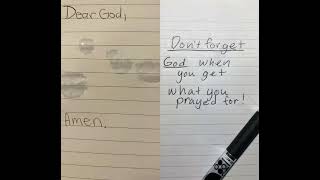 Dear God,
Amen.
Don't forget
God when
you get
what you
prayed for!